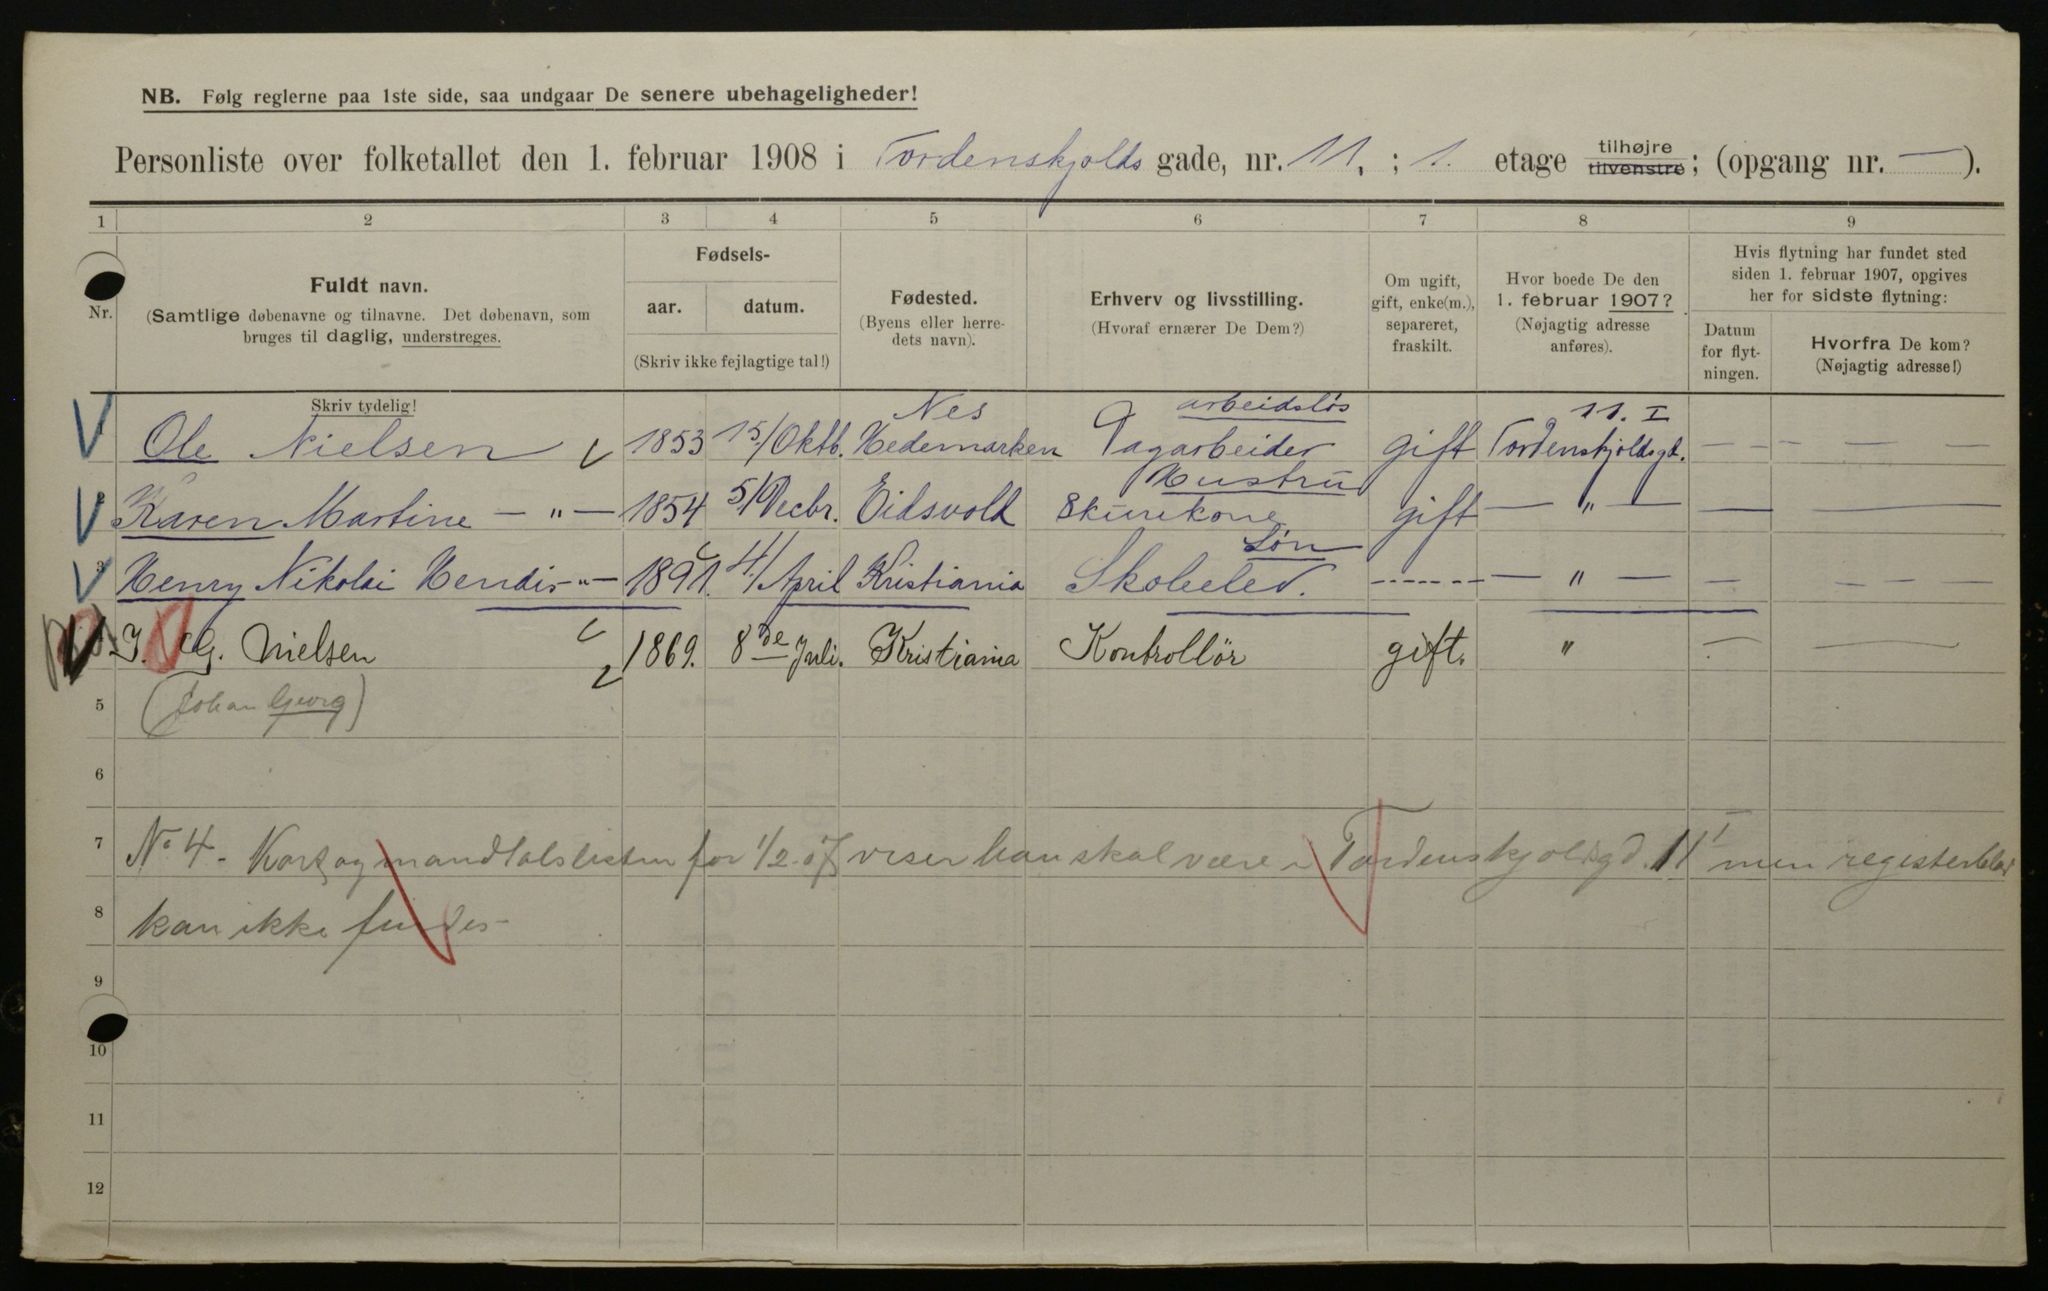 NB. Følg reglerne paa 1ste side, saa undgaar De senere ubehageligheder!
Personliste over folketallet den 1. februar 1908 i Tordenskjolds gade, nr. 11, ; 1. etage tilhøjre tilvenstre; (opgang nr. — ).
1 2 3 4 5 6 7 8 9
Nr.
Fuldt navn.
(Samtlige døbenavne og tilnavne. Det døbenavn, som
bruges til daglig, understreges.
Skriv tydelig!
Fødsels-
aar. datum.
(Skriv ikke fejlagtige tal!)
Fødested.
(Byens eller herre-
dets navn).
Erhverv og livsstilling.
(Hvoraf ernærer De Dem?)
Om ugift,
gift, enke(m.),
separeret,
fraskilt.
Hvor boede De den
1. februar 1907?
(Nøjagtig adresse
anføres).
Hvis flytning har fundet sted
siden 1. februar 1907, opgives
her for sidste flytning:
Datum
for flyt-
ningen.
Hvorfra De kom?
(Nøjagtig adresse!)
Nes arbeidsløs 11. I
Ole Nielsen 1853 15/ Oktb. Hedemarken Dagarbeider gift Tordenskjoldsgd. — — — —
Hustru
Karen Martine — " — 1854 5/ Decbr. Eidsvold Skurekone gift — " — — —
Søn
3 Henry Nikolai Hendis — " — 1891. 4/ April Kristiania Skoleelev. ------- — " — — — —
J. G. Nielsen 1869. 8de Juli. Kristiania Kontrollör gift. " — —
5 (Johan Georg)
6
7 No 4 - Kort og mandtalslisten for 1/2 07 viser han skal være i Tordenskjoldsgd. 11 I men registerblad
8 kan ikke findes-
9
10
11
12